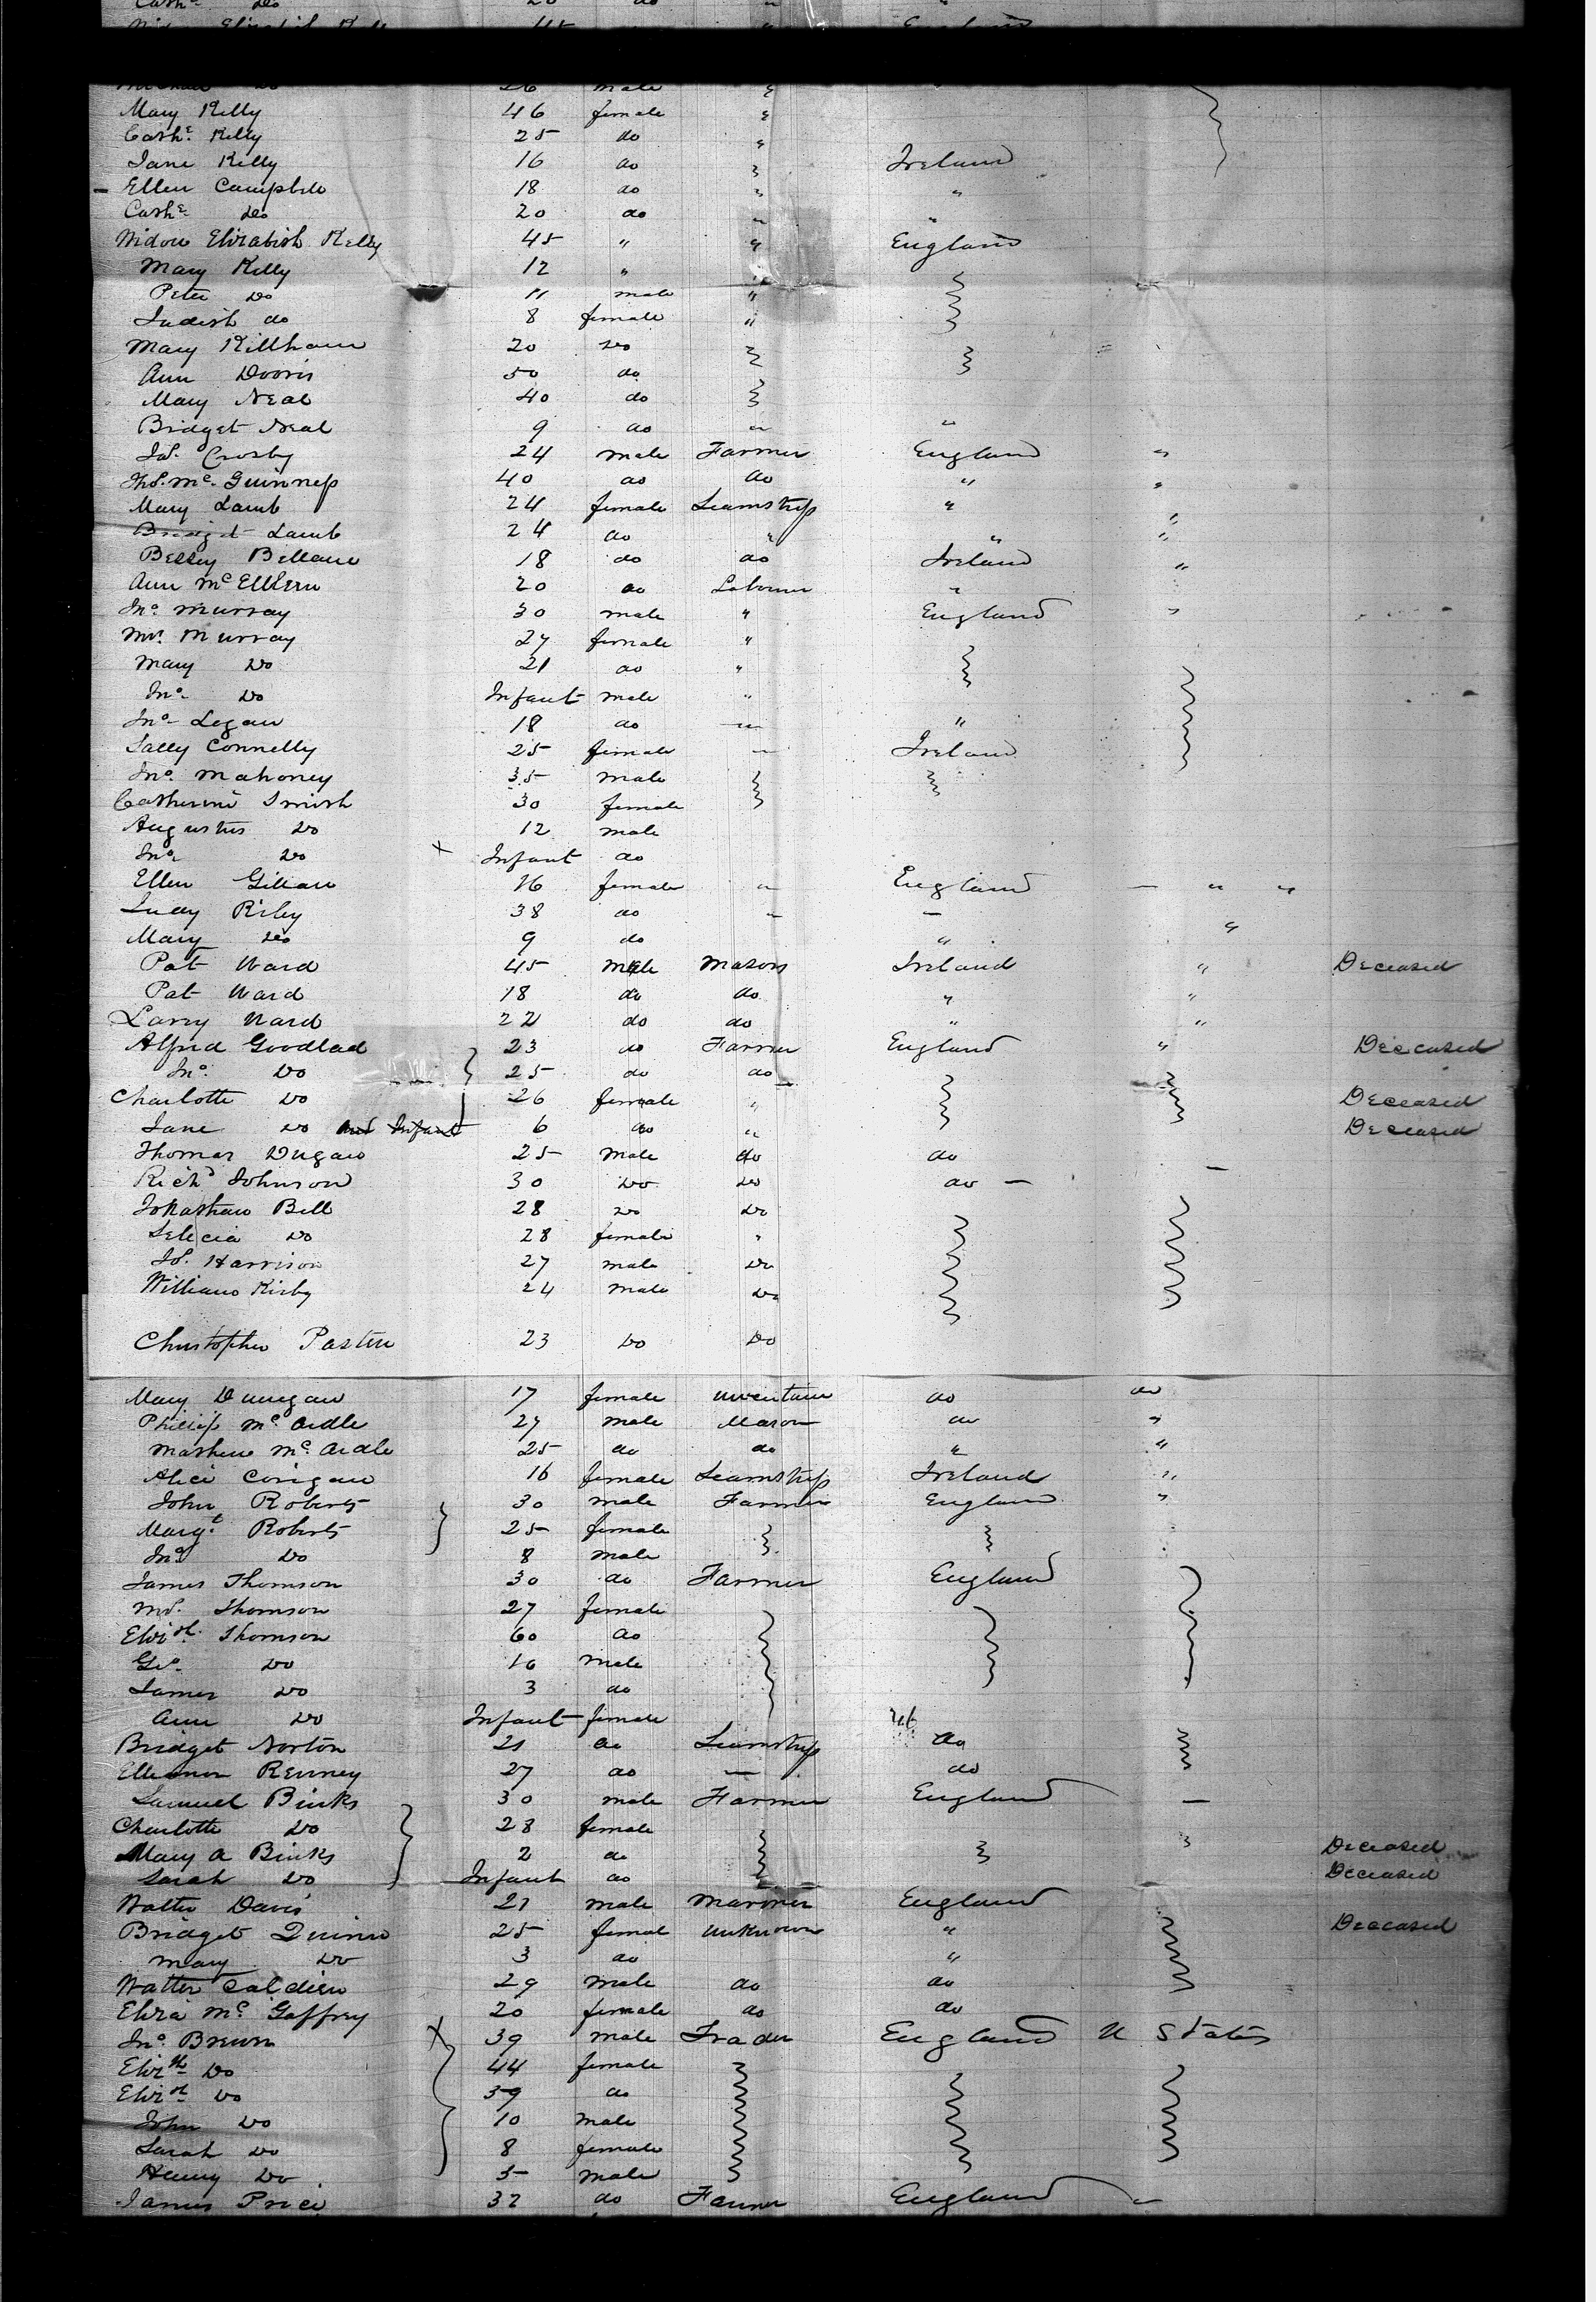 Cath.e do 20 do "
Michael Do 26 male "
Mary Kelly 46 female "
Cath.e Kelly 25 do "
Jane Kelly 16 do " Ireland
Ellen Campbell 18 do " "
Cath.e do 20 do " "
Widow Elizabeth Kelly 45 " " England
Mary Kelly 12 "
Peter Do 11 male "
Judith do 8 female "
Mary Killham 20 Do
Ann Dooris 50 do
Mary Neal 40 do
Bridget Neal 9 do " "
Jos. Crosby 24 male Farmer England "
Thos. McGuinness 40 do do " "
Mary Lamb 24 female Seamstress " "
Bridget Lamb 24 do " " "
Bessey Bellane 18 do do Ireland "
Ann McElhern 20 do Laborer "
Jno. Murray 30 male " England "
Mrs. Murray 27 female "
Mary Do 21 do "
Jno. Do Infant male "
Jno. Legan 18 do " "
Sally Connelly 25 female " Ireland
Jno. Mahoney 35 male
Catherine Smith 30 female
Augustus Do 12 male
Jno. Do x Infant do
Ellen Gillan 16 female " England — " "
Judy Riley 38 do " — "
Mary Do 9 do "
Pat Ward 45 male Mason Ireland " Deceased
Pat Ward 18 do do " "
Larry Ward 22 do do " "
Alfred Goodlad 23 do Farmer England " Deceased
Jno. Do 25 do do
Charlotte Do 26 female " Deceased
Jane Do and Infant 6 do " Deceased
Thomas Dugan 25 male do do
Richd Johnson 30 Do Do do —
Jonathan Bell 28 Do Do
Selecia Do 28 female "
Jos. Harrison 27 male Do
William Kirby 24 male Do
Christopher Pasten 23 Do Do
Mary Dunegan 17 female do do
Phillip McArdle 27 male Mason do "
Mathew McArdle 25 do do " "
Alice Corigan 16 female Seamstress Ireland "
John Roberts 30 male Farmer England "
Margt. Roberts 25 female
Jno. Do 8 male
James Thomson 30 do Farmer England
Mrs. Thomson 27 female
Elizth. Thomson 60 do
Geo. Do 16 male
James Do 3 do
Ann Do Infant female
Bridget Norton 21 do Seamstress do
Elleanor Renney 27 do — do
Samuel Binks 30 male Farmer England —
Charlotte Do 28 female
Mary A Binks 2 do Deceased
Sarah Do Infant do Deceased
Walter Davis 21 male Mariner England
Bridget Quinn 25 female unknown " Deceased
Mary Do 3 do "
Walter 29 male do do
Eliza McGaffrey 20 female do do
Jno. Brown X 39 male Trader England U States
Elizth Do 44 female
Elizth Do 39 do
John Do 10 male
Sarah Do 8 female
Henry Do 5 male
James Price 32 do Farmer England "